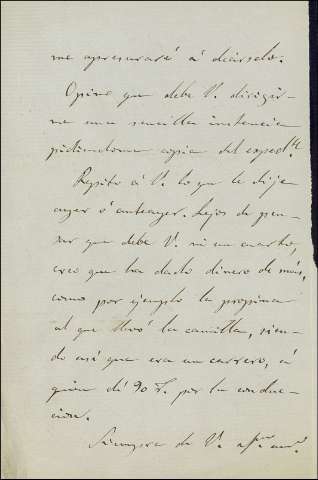 me apresuraré á decirselo.
Opino que debe V. dirigir-
me una sencilla instancia
pidiendome copia del exped.te
Repito á V. lo que le dije
ayer ó anteayer. Lejos de pen-
sar que debe V. ni un cuarto,
creo que ha dado dinero de más,
como por ejemplo la propina
al que llevó la camilla, sien-
do asi que era un carrero, á
quien dí 90 r. por la conduc-
cion.
Siempre de V. af.mo am.o